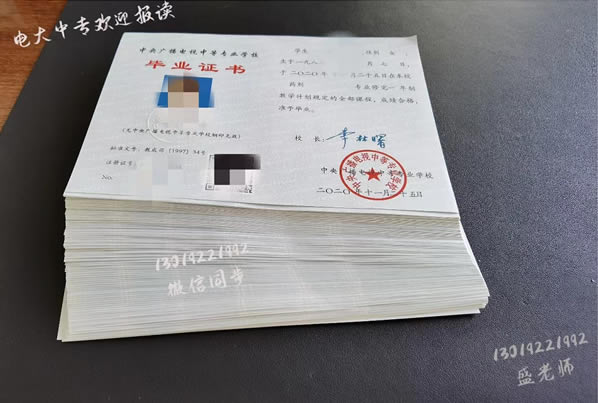 电大中专欢迎报读
中央广播电视中等专业学校
毕业证书
(无中央广播电视中等专业学校钢印无效)
批准文号:教成司(1997)34号
注册证号:
No.
学生 性别 女
生于一九八 年 月 七 日,
于二〇二〇年 月二十五日在本校
药剂 专业修完一年制
教学计划规定的全部课程,成绩合格,
准予毕业。
校 长:
中央广播电视中等专业学校
二〇二〇年十一月 十五日
13019221992
微信同步
13019221992
盛老师